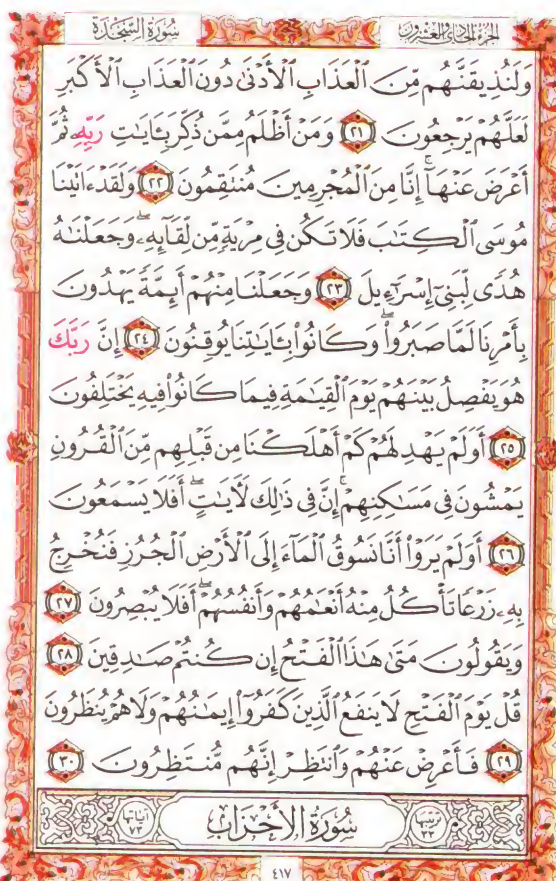 الجزء الحادي والعشرون
سُورَةُ السَّجْدَةِ
وَلَنُذِيقَنَّهُم مِّنَ ٱلْعَذَابِ ٱلْأَدْنَىٰ دُونَ ٱلْعَذَابِ ٱلْأَكْبَرِ
لَعَلَّهُمْ يَرْجِعُونَ ﴿٢١﴾ وَمَنْ أَظْلَمُ مِمَّن ذُكِّرَ بِـَٔايَـٰتِ رَبِّهِۦ ثُمَّ
أَعْرَضَ عَنْهَآ ۚ إِنَّا مِنَ ٱلْمُجْرِمِينَ مُنتَقِمُونَ ﴿٢٢﴾ وَلَقَدْ ءَاتَيْنَا
مُوسَى ٱلْكِتَـٰبَ فَلَا تَكُن فِى مِرْيَةٍ مِّن لِّقَآئِهِۦ ۖ وَجَعَلْنَـٰهُ
هُدًى لِّبَنِىٓ إِسْرَٰٓءِيلَ ﴿٢٣﴾ وَجَعَلْنَا مِنْهُمْ أَئِمَّةً يَهْدُونَ
بِأَمْرِنَا لَمَّا صَبَرُوا۟ ۖ وَكَانُوا۟ بِـَٔايَـٰتِنَا يُوقِنُونَ ﴿٢٤﴾ إِنَّ رَبَّكَ
هُوَ يَفْصِلُ بَيْنَهُمْ يَوْمَ ٱلْقِيَـٰمَةِ فِيمَا كَانُوا۟ فِيهِ يَخْتَلِفُونَ
﴿٢٥﴾ أَوَلَمْ يَهْدِ لَهُمْ كَمْ أَهْلَكْنَا مِن قَبْلِهِم مِّنَ ٱلْقُرُونِ
يَمْشُونَ فِى مَسَـٰكِنِهِمْ ۚ إِنَّ فِى ذَٰلِكَ لَـَٔايَـٰتٍ ۖ أَفَلَا يَسْمَعُونَ
﴿٢٦﴾ أَوَلَمْ يَرَوْا۟ أَنَّا نَسُوقُ ٱلْمَآءَ إِلَى ٱلْأَرْضِ ٱلْجُرُزِ فَنُخْرِجُ
بِهِۦ زَرْعًا تَأْكُلُ مِنْهُ أَنْعَـٰمُهُمْ وَأَنفُسُهُمْ ۖ أَفَلَا يُبْصِرُونَ ﴿٢٧﴾
وَيَقُولُونَ مَتَىٰ هَـٰذَا ٱلْفَتْحُ إِن كُنتُمْ صَـٰدِقِينَ ﴿٢٨﴾
قُلْ يَوْمَ ٱلْفَتْحِ لَا يَنفَعُ ٱلَّذِينَ كَفَرُوٓا۟ إِيمَـٰنُهُمْ وَلَا هُمْ يُنظَرُونَ
﴿٢٩﴾ فَأَعْرِضْ عَنْهُمْ وَٱنتَظِرْ إِنَّهُم مُّنتَظِرُونَ ﴿٣٠﴾
ترتيبها ٣٣ سُورَةُ الْأَحْزَابِ آياتها ٧٣
٤١٧